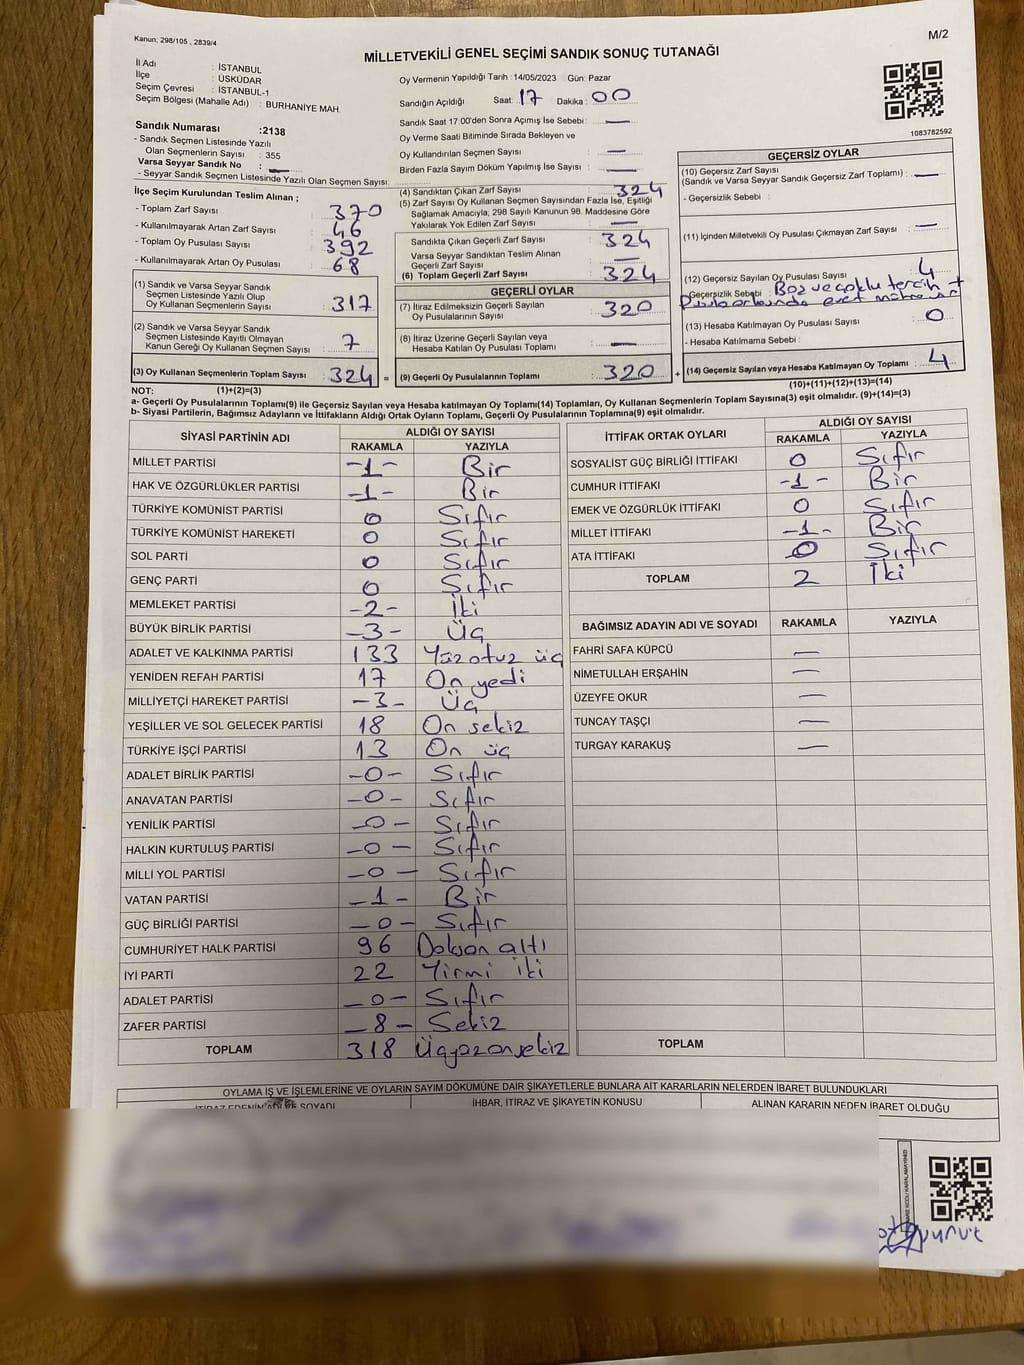 Kanun; 298/105 , 2839/4
M/2
MİLLETVEKİLİ GENEL SEÇİMİ SANDIK SONUÇ TUTANAĞI
İl Adı : İSTANBUL
İlçe : ÜSKÜDAR
Seçim Çevresi : İSTANBUL-1
Seçim Bölgesi (Mahalle Adı) : BURHANİYE MAH.
Sandık Numarası :2138
- Sandık Seçmen Listesinde Yazılı
Olan Seçmenlerin Sayısı : 355
Varsa Seyyar Sandık No : —
- Seyyar Sandık Seçmen Listesinde Yazılı Olan Seçmen Sayısı:
Oy Vermenin Yapıldığı Tarih :14/05/2023 Gün: Pazar
Sandığın Açıldığı Saat: 17 Dakika: 00
Sandık Saat 17:00'den Sonra Açımış İse Sebebi : —
Oy Verme Saati Bitiminde Sırada Bekleyen ve
Oy Kullandırılan Seçmen Sayısı : —
Birden Fazla Sayım Döküm Yapılmış İse Sayısı : —
1083782592
İlçe Seçim Kurulundan Teslim Alınan ;
- Toplam Zarf Sayısı : 370
- Kullanılmayarak Artan Zarf Sayısı : 46
- Toplam Oy Pusulası Sayısı : 392
- Kullanılmayarak Artan Oy Pusulası : 68
(1) Sandık ve Varsa Seyyar Sandık
Seçmen Listesinde Yazılı Olup
Oy Kullanan Seçmenlerin Sayısı : 317
(2) Sandık ve Varsa Seyyar Sandık
Seçmen Listesinde Kayıtlı Olmayan
Kanun Gereği Oy Kullanan Seçmen Sayısı : 7
(3) Oy Kullanan Seçmenlerin Toplam Sayısı : 324 =
(4) Sandıktan Çıkan Zarf Sayısı : 324
(5) Zarf Sayısı Oy Kullanan Seçmen Sayısından Fazla İse, Eşitliği
Sağlamak Amacıyla, 298 Sayılı Kanunun 98. Maddesine Göre
Yakılarak Yok Edilen Zarf Sayısı : —
Sandıkta Çıkan Geçerli Zarf Sayısı : 324
Varsa Seyyar Sandıktan Teslim Alınan
Geçerli Zarf Sayısı : —
(6) Toplam Geçerli Zarf Sayısı : 324
GEÇERLİ OYLAR
(7) İtiraz Edilmeksizin Geçerli Sayılan
Oy Pusulalarının Sayısı : 320
(8) İtiraz Üzerine Geçerli Sayılan veya
Hesaba Katılan Oy Pusulası Toplamı : —
(9) Geçerli Oy Pusulalarının Toplamı : 320 +
GEÇERSİZ OYLAR
(10) Geçersiz Zarf Sayısı
(Sandık ve Varsa Seyyar Sandık Geçersiz Zarf Toplamı) : —
- Geçersizlik Sebebi :
(11) İçinden Milletvekili Oy Pusulası Çıkmayan Zarf Sayısı : —
(12) Geçersiz Sayılan Oy Pusulası Sayısı : 4
- Geçersizlik Sebebi : Boş ve çoklu tercih +
Pusula arkasında evet mührü var
(13) Hesaba Katılmayan Oy Pusulası Sayısı : 0
- Hesaba Katılmama Sebebi :
(14) Geçersiz Sayılan veya Hesaba Katılmayan Oy Toplamı : 4
NOT: (1)+(2)=(3)
(10)+(11)+(12)+(13)=(14)
a- Geçerli Oy Pusulalarının Toplamı(9) ile Geçersiz Sayılan veya Hesaba katılmayan Oy Toplamı(14) Toplamları, Oy Kullanan Seçmenlerin Toplam Sayısına(3) eşit olmalıdır. (9)+(14)=(3)
b- Siyasi Partilerin, Bağımsız Adayların ve İttifakların Aldığı Ortak Oyların Toplamı, Geçerli Oy Pusulalarının Toplamına(9) eşit olmalıdır.
SİYASİ PARTİNİN ADI ALDIĞI OY SAYISI
RAKAMLA YAZIYLA
MİLLET PARTİSİ -1- Bir
HAK VE ÖZGÜRLÜKLER PARTİSİ -1- Bir
TÜRKİYE KOMÜNİST PARTİSİ 0 Sıfır
TÜRKİYE KOMÜNİST HAREKETİ 0 Sıfır
SOL PARTİ 0 Sıfır
GENÇ PARTİ 0 Sıfır
MEMLEKET PARTİSİ -2- İki
BÜYÜK BİRLİK PARTİSİ -3- Üç
ADALET VE KALKINMA PARTİSİ 133 Yüz otuz üç
YENİDEN REFAH PARTİSİ 17 On yedi
MİLLİYETÇİ HAREKET PARTİSİ -3- Üç
YEŞİLLER VE SOL GELECEK PARTİSİ 18 On sekiz
TÜRKİYE İŞÇİ PARTİSİ 13 On üç
ADALET BİRLİK PARTİSİ -0- Sıfır
ANAVATAN PARTİSİ -0- Sıfır
YENİLİK PARTİSİ -0- Sıfır
HALKIN KURTULUŞ PARTİSİ -0- Sıfır
MİLLİ YOL PARTİSİ -0- Sıfır
VATAN PARTİSİ -1- Bir
GÜÇ BİRLİĞİ PARTİSİ -0- Sıfır
CUMHURİYET HALK PARTİSİ 96 Doksan altı
İYİ PARTİ 22 Yirmi iki
ADALET PARTİSİ -0- Sıfır
ZAFER PARTİSİ -8- Sekiz
TOPLAM 318 Üçyüzonsekiz
İTTİFAK ORTAK OYLARI ALDIĞI OY SAYISI
RAKAMLA YAZIYLA
SOSYALİST GÜÇ BİRLİĞİ İTTİFAKI 0 Sıfır
CUMHUR İTTİFAKI -1- Bir
EMEK VE ÖZGÜRLÜK İTTİFAKI 0 Sıfır
MİLLET İTTİFAKI -1- Bir
ATA İTTİFAKI 0 Sıfır
TOPLAM 2 İki
BAĞIMSIZ ADAYIN ADI VE SOYADI RAKAMLA YAZIYLA
FAHRİ SAFA KÜPCÜ —
NİMETULLAH ERŞAHİN —
ÜZEYFE OKUR —
TUNCAY TAŞÇI —
TURGAY KARAKUŞ —
TOPLAM
OYLAMA İŞ VE İŞLEMLERİNE VE OYLARIN SAYIM DÖKÜMÜNE DAİR ŞİKAYETLERLE BUNLARA AİT KARARLARIN NELERDEN İBARET BULUNDUKLARI
İTİRAZ EDENİN ADI VE SOYADI İHBAR, İTİRAZ VE ŞİKAYETİN KONUSU ALINAN KARARIN NEDEN İBARET OLDUĞU